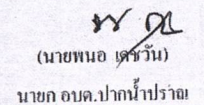 (นายพนอ เดชวัน)
นายก อบต.ปากน้ำปราณ